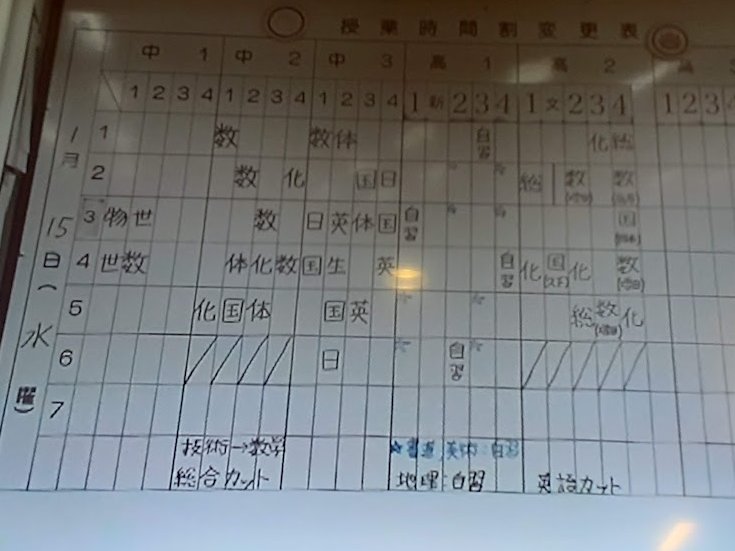 授業時間割変更表
中 1 中 2 中 3 高 1 高 2
1 2 3 4 1 2 3 4 1 2 3 4 1 新 2 3 4 1 文 2 3 4 1 2 3
1月15日(水曜)
1 数 数 体 自習 化 総
2 数 化 国 日 ☆ ☆ 総 数 数
3 物 世 数 日 英 体 国 自習 ☆ ☆ 国
4 世 数 体 化 数 国 生 英 自習 化 国 化 数
5 化 国 体 国 英 ☆ ☆ 総 数 化
6 日 ☆ 自習 ☆
7
技術→数学 ☆書道,英内:自習
総合カット 地理:自習 英語カット